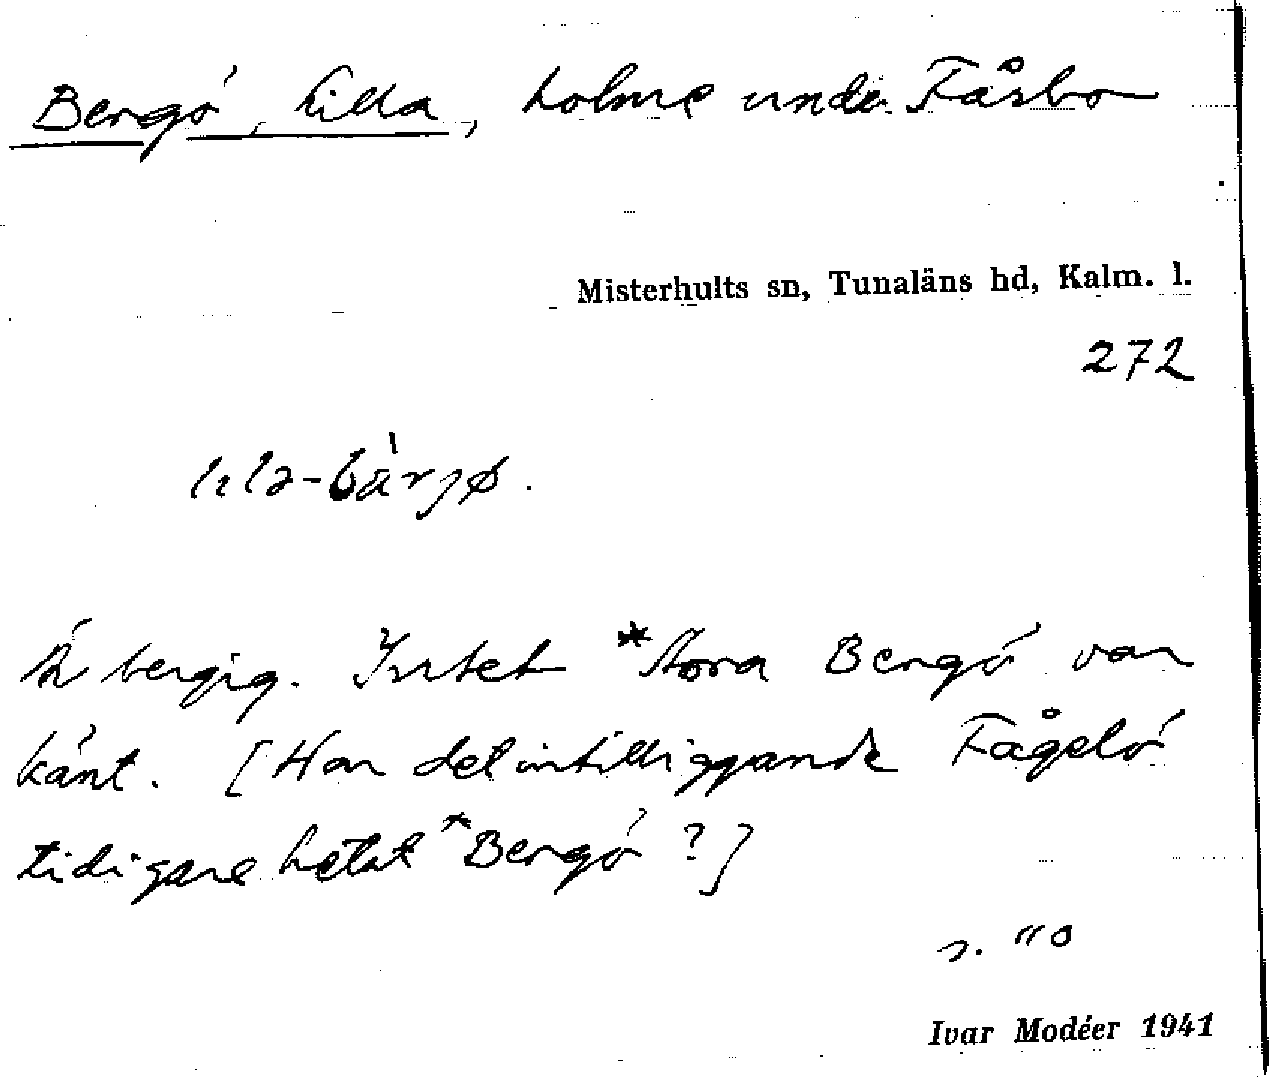 Bergö, Lilla, holme under Fårbo
Misterhults sn, Tunaläns hd, Kalm. l.
272
lıla-bärjø.
Är bergig. Intet *Stora Bergö var
känt. [Har det intilliggande Fågelö
tidigare hetat *Bergö ?]
Ivar Modéer 1941